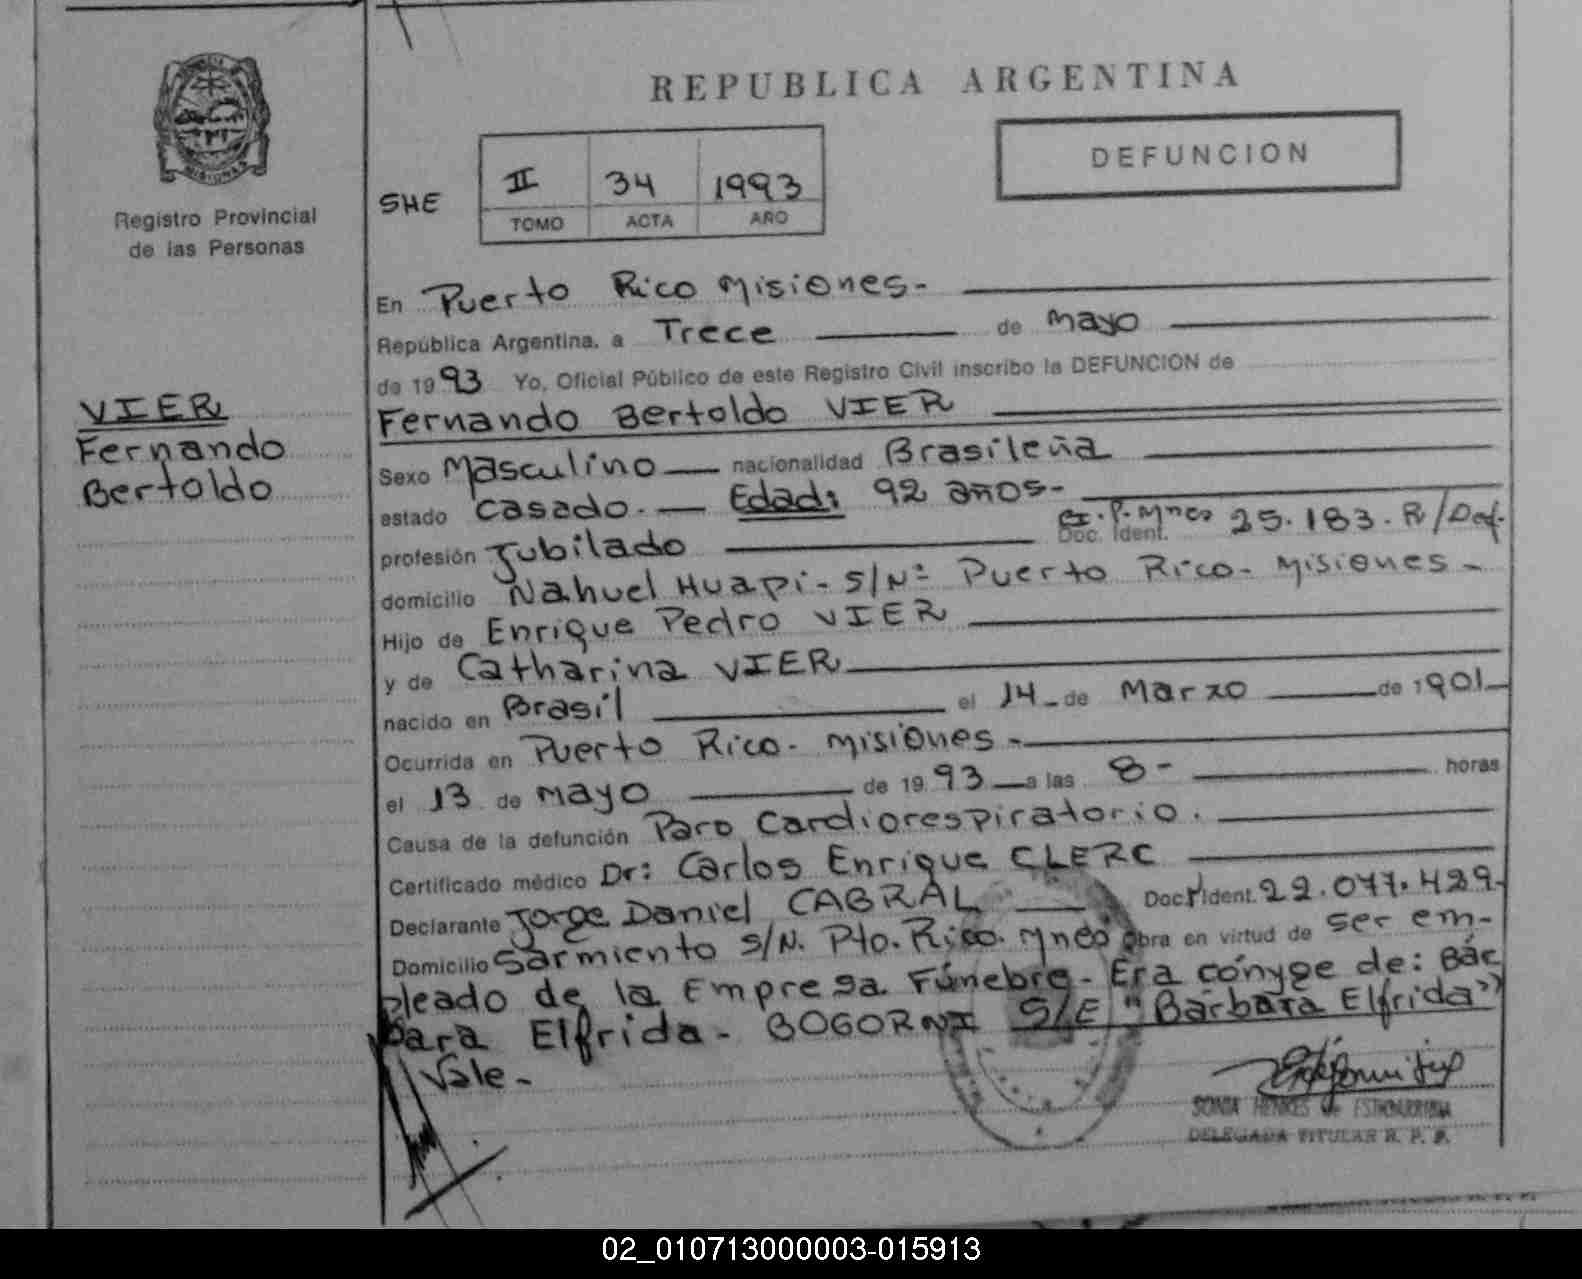 REPUBLICA ARGENTINA
DEFUNCION
MISIONES
Registro Provincial
de las Personas
SHE
II 34 1993
TOMO ACTA AÑO
VIER
Fernando
Bertoldo
En Puerto Rico Misiones.-
República Argentina, a Trece de Mayo
de 1993 Yo, Oficial Público de este Registro Civil inscribo la DEFUNCION de
Fernando Bertoldo VIER
Sexo Masculino nacionalidad Brasileña
estado casado.- Edad: 92 años-
profesión Jubilado Doc. Ident. P. Mnes 25.183. R/Def.
domicilio Nahuel Huapi- S/Nº Puerto Rico- Misiones-
Hijo de Enrique Pedro VIER
y de Catharina VIER
nacido en Brasil el 14 de Marzo de 1901
Ocurrida en Puerto Rico- Misiones-
el 13 de mayo de 1993 a las 8- horas
Causa de la defunción Paro Cardiorespiratorio.
Certificado médico Dr: Carlos Enrique CLERC
Declarante Jorge Daniel CABRAL Doc. Ident. 22.077.429-
Domicilio Sarmiento S/N. Pto. Rico. Mnes obra en virtud de ser em-
pleado de la Empresa Fúnebre- Era cónyge de: Bár
bara Elfrida- BOGORNI S/E "Bárbara Elfrida"
Vale-
SONIA HENKES de
DELEGADA TITULAR R. P. P.
02_010713000003-015913